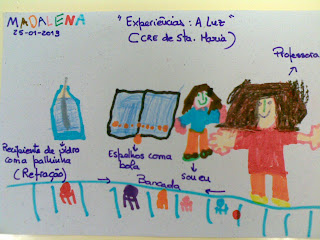 MADALENA
25-01-2019
"Experiências: A Luz"
(CRE de Sta. Maria)
Professora
Recipiente de vidro
com a palhinha
(Refração)
Espelhos com a
bola
sou eu
Bancada